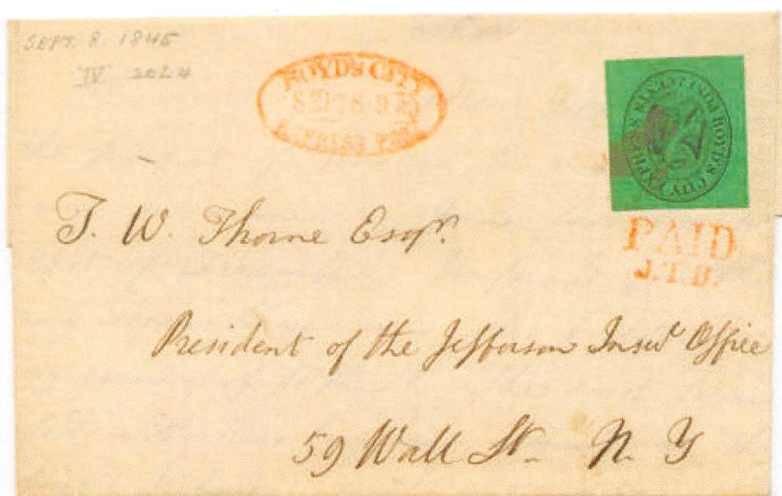 SEPT. 8. 1845
IV 20L4
BOYD'S CITY
SEP 8 9
EXPRESS POST
BOYD'S CITY EXPRESS POST
PAID
J.T.B.
T. W. Thorne Esqr.
President of the Jefferson Insu Office
59 Wall St. N. Y